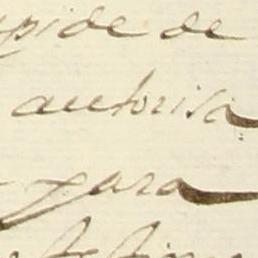 pide de
autorisa
para